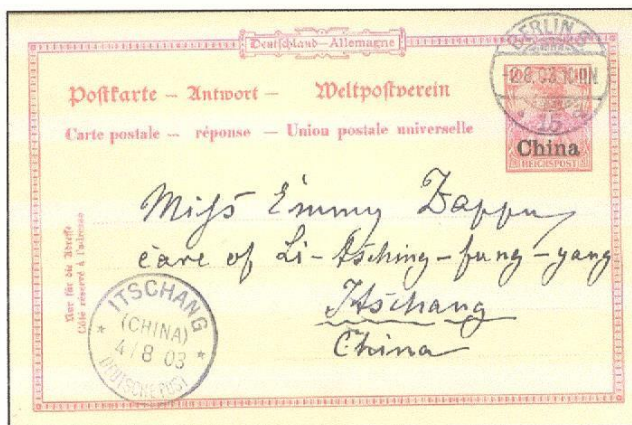 Deutschland—Allemagne
Postkarte — Antwort — Weltpostverein
Carte postale — réponse — Union postale universelle
BERLIN
15
China
REICHSPOST
Miss Emmy
care of Li-tsching-fung-yang
Itschang
China
Nur für die Adresse
Côté réservé à l'adresse
ITSCHANG
(CHINA)
4/8 03
DEUTSCHE POST